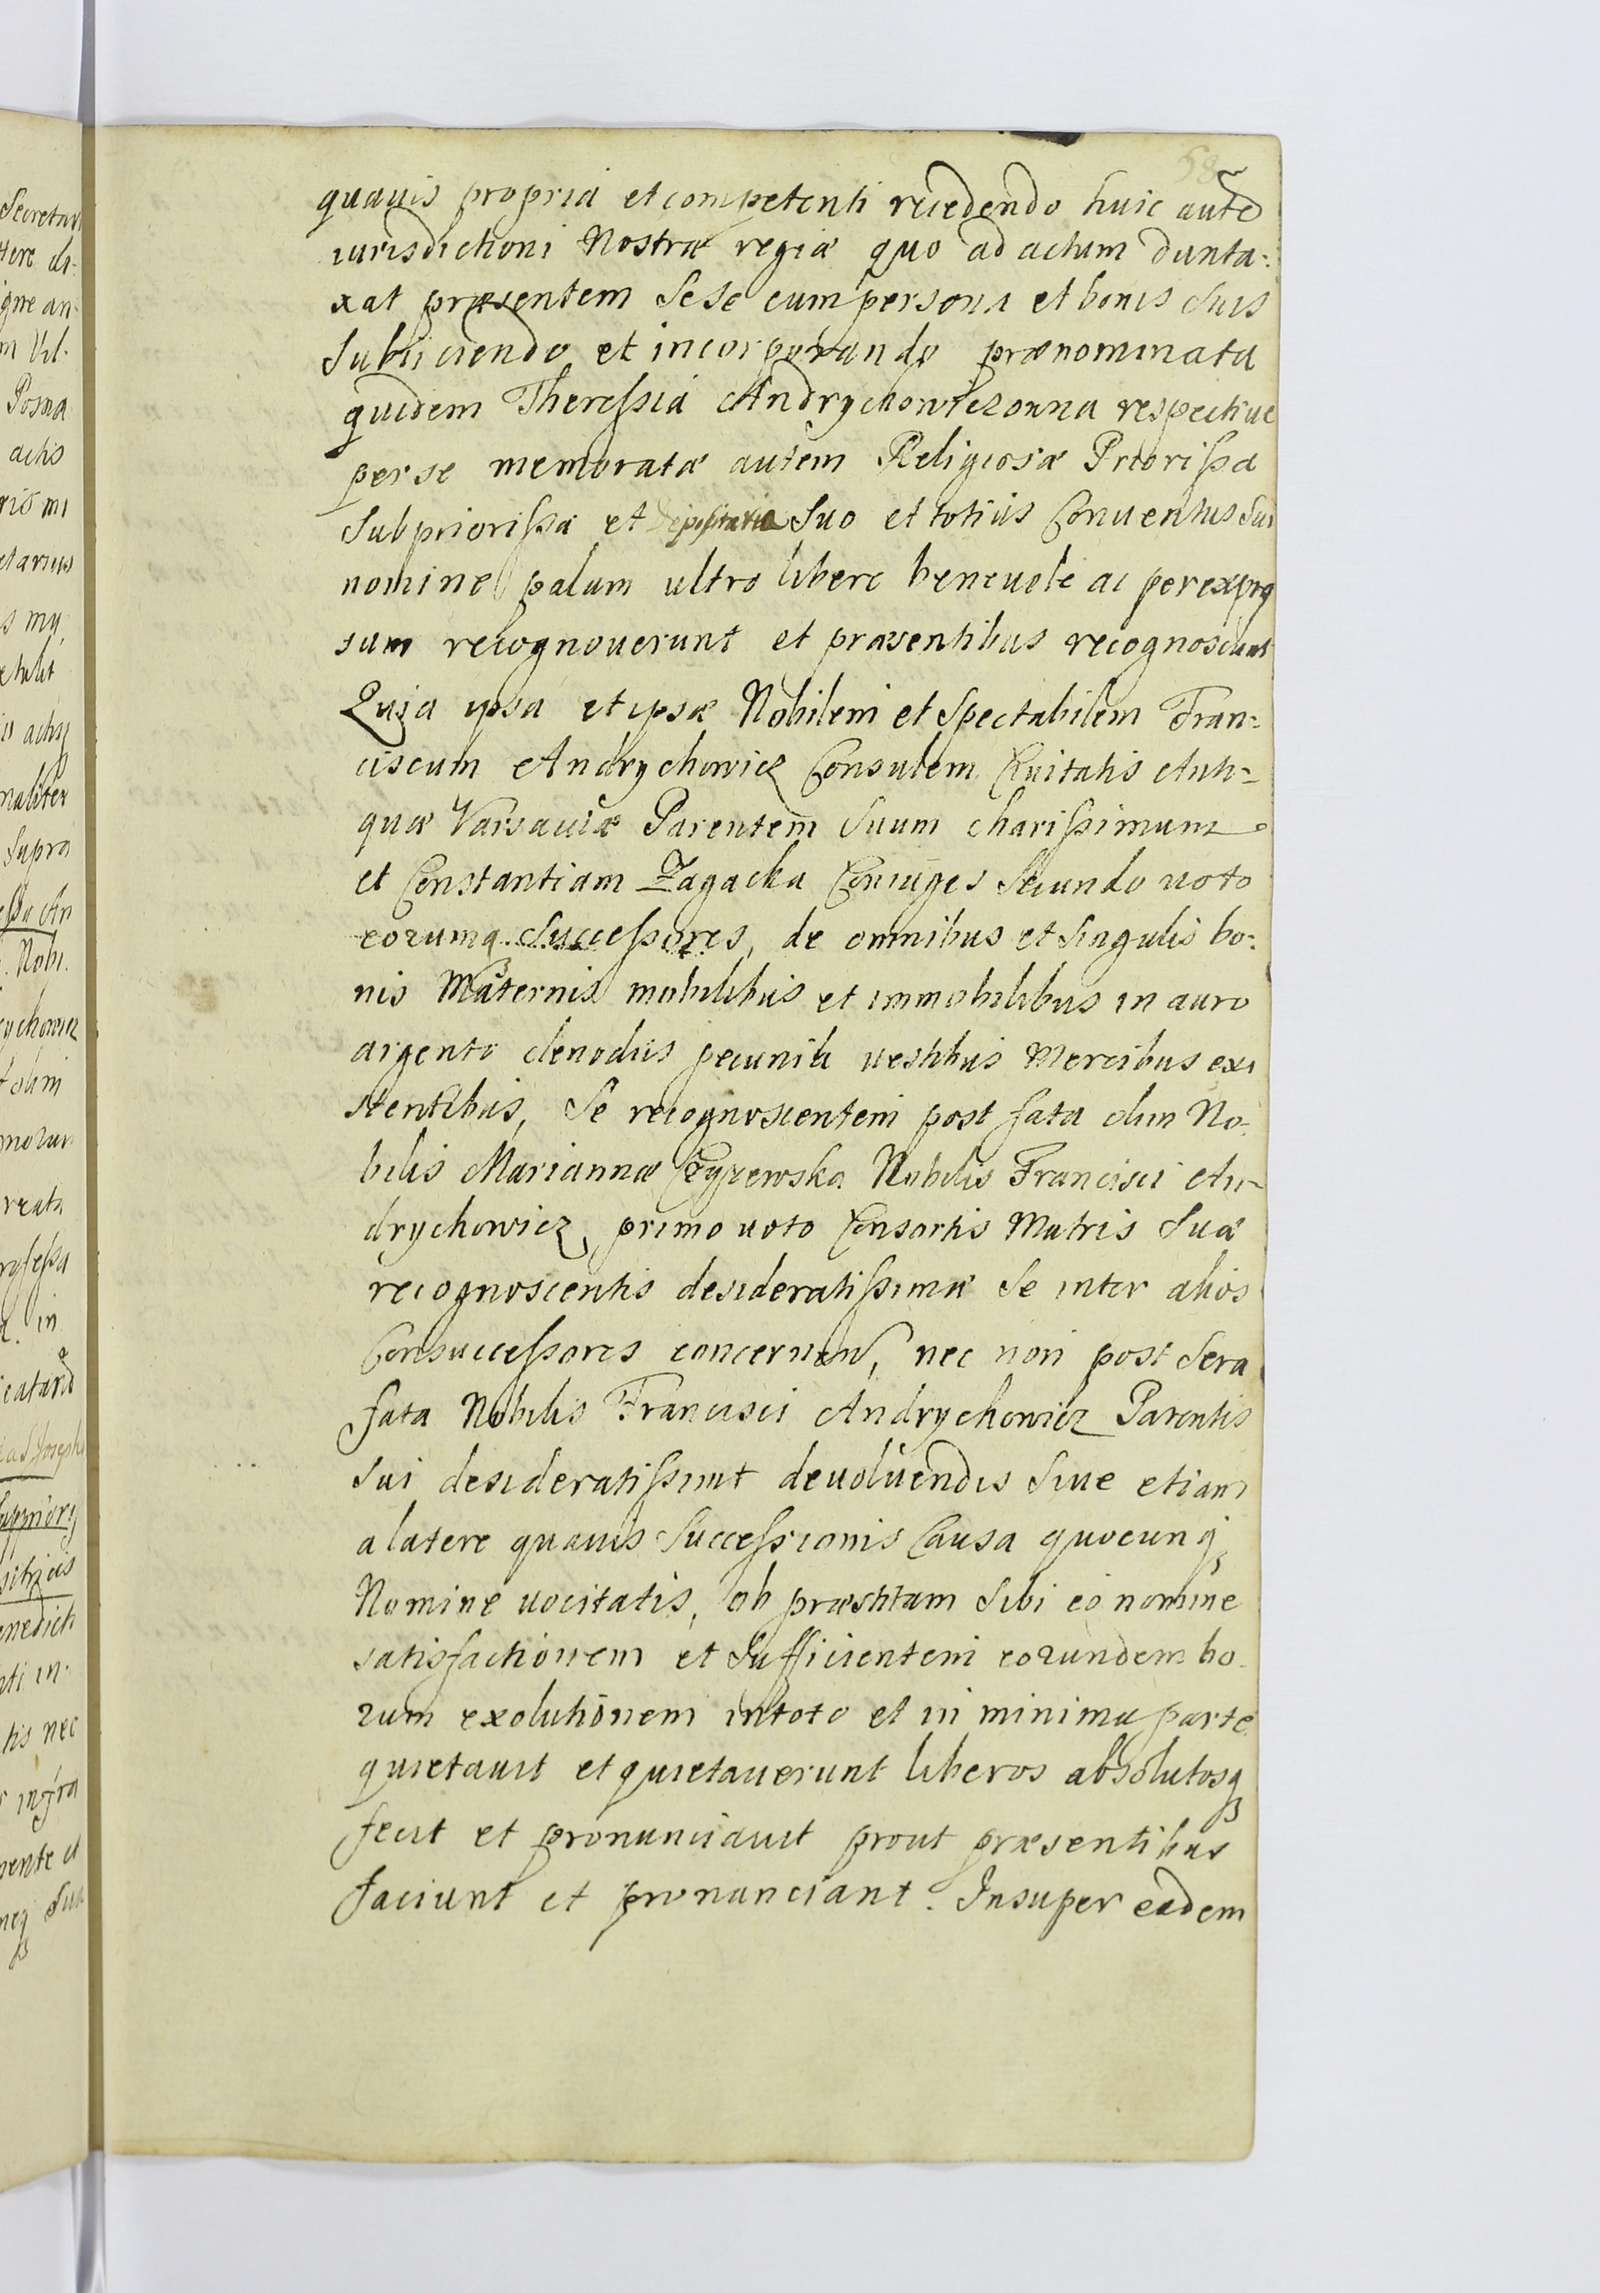 58
quauis propria et competenti recedendo huic autẽ
iurisdictioni Nostræ regiæ quo ad actum dunta:
xat præsentem Sese cum persona et bonis Suis
Subiiciendo et incorporando prænominata
quidem Theressia Andrychowiczonna respectiue
per se memoratæ autem Religiosæ Priorissa
Subpriorissa et Depositaria Suo et totius Conuentus Sui
nomine palam ultro libere beneuole ac per expres
sum recognouerunt et præsentibus recognoscunt
Quia ipsa et ipsæ Nobilem et Spectabilem Fran-
ciscum Andrychowicz Consulem Ciuitatis Anti-
quæ Varsauiæ Parentem Suum charissimum
et Constantiam Zagacka Coniuges Secundo uoto
eorumq. Successores, de omnibus et Singulis bo:
nis Maternis mobilibus et immobilibus in auro
argento clenodiis pecunia uestibus Mercibus exi
stentibus, Se recognoscentem post fata olim No-
bilis Mariannæ Czyzewska Nobilis Francisci An-
drychowicz, primo uoto Consortis Matris Suæ
recognoscentis desideratissimæ Se inter alios
Consuccessores concernen, nec non post Sera
fata Nobilis Francisci Andrychowicz Parentis
Sui desideratissimi deuoluendis Siue etiam
a latere quauis Successionis Causa quocunq
Nomine uocitatis, ob præstitam Sibi eo nomine
satisfactionem et Sufficientem eorundem bo-
rum exolutionem in toto et in minima parte
quietauit et quietauerunt liberos absolutosq
fecit et pronunciauit prout præsentibus
faciunt et pronunciant. Insuper eadem